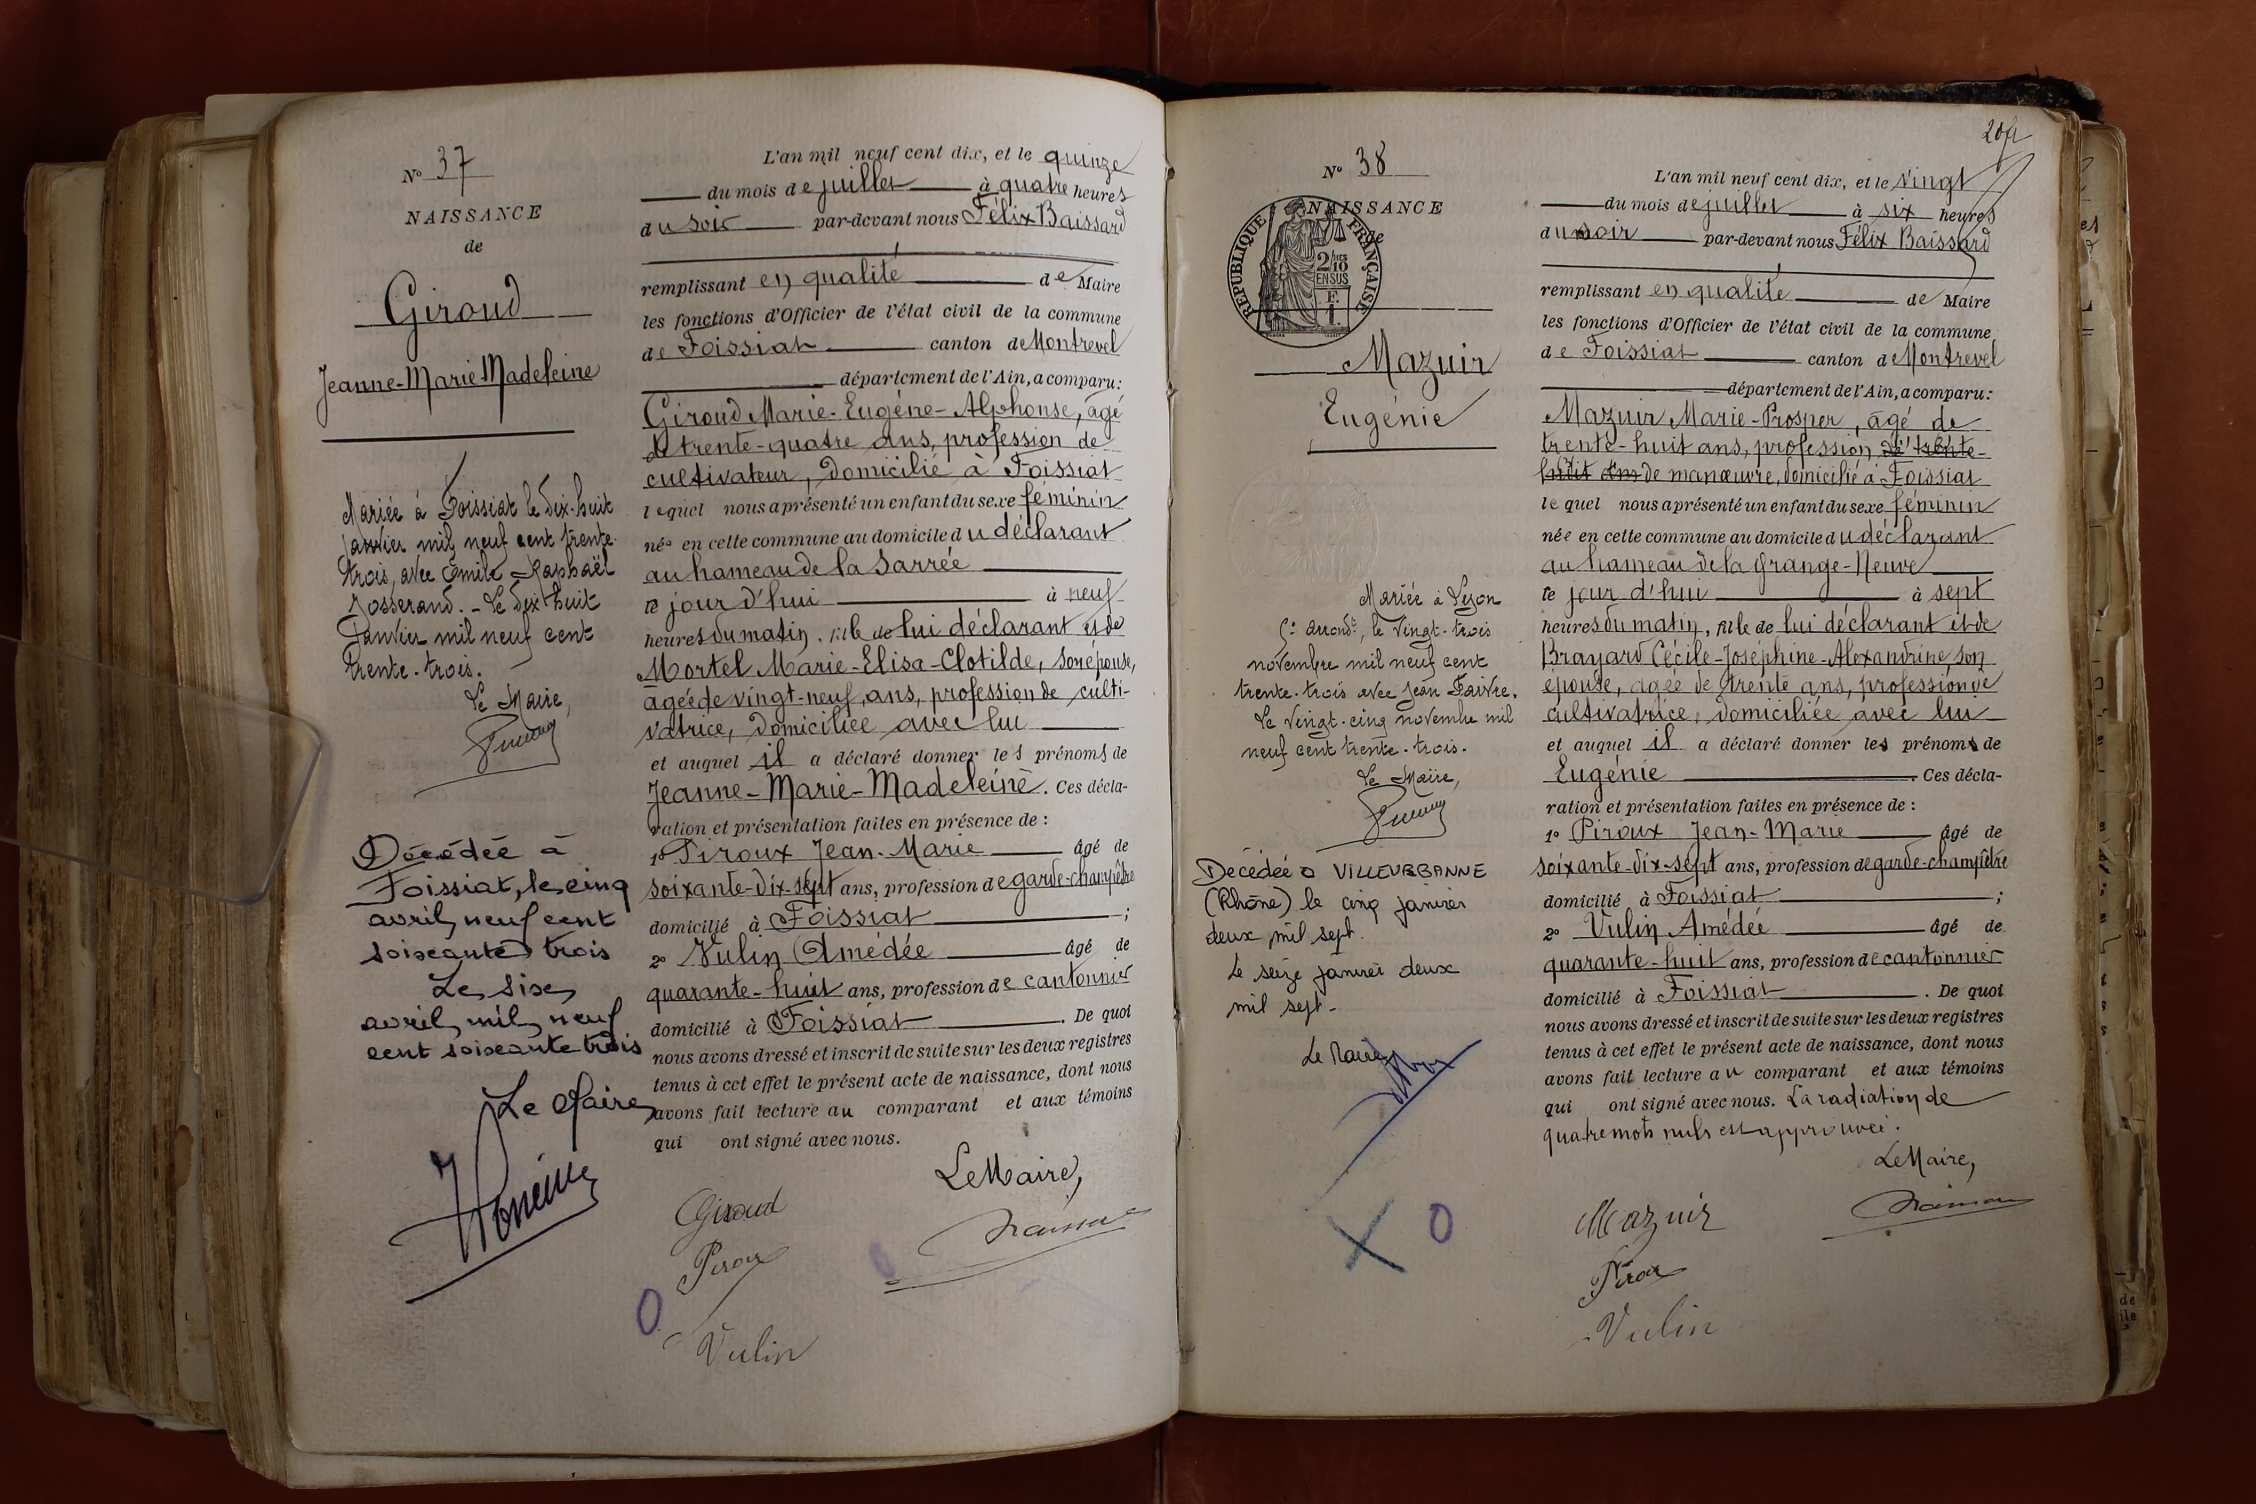 N° 37
NAISSANCE
de
Giroud
Jeanne-Marie-Madeleine
Mariée à Foissiat le dix-huit
janvier mil neuf cent trente-
trois, avec Emile Raphaël
Josserand. - Le dix huit
Janvier mil neuf cent
trente-trois.
Le Maire,
Décédée à
Foissiat, le cinq
avril neuf cent
soixante trois
Le six
avril mil neuf
cent soixante trois
Le Maire
L'an mil neuf cent dix, et le quinze
du mois de juillet à quatre heures
du soir par-devant nous Félix Baissard
remplissant en qualité de Maire
les fonctions d'Officier de l'état civil de la commune
de Foissiat canton de Montrevel
département de l'Ain, a comparu:
Giroud Marie-Eugène-Alphonse, âgé
de trente-quatre ans, profession de
cultivateur, domicilié à Foissiat
lequel nous a présenté un enfant du sexe féminin
née en cette commune au domicile du déclarant
au hameau de la Sarrée
ce jour d'hui à neuf
heures du matin, fille de lui déclarant et de
Mortel Marie-Elisa-Clotilde, son épouse,
âgée de vingt-neuf ans, profession de culti-
vatrice, domiciliée avec lui
et auquel il a déclaré donner les prénoms de
Jeanne-Marie-Madeleine. Ces décla-
ration et présentation faites en présence de :
1° Piroux Jean-Marie âgé de
soixante-dix-sept ans, profession de garde-champêtre
domicilié à Foissiat ;
2° Vulin Amédée âgé de
quarante-huit ans, profession de cantonnier
domicilié à Foissiat . De quoi
nous avons dressé et inscrit de suite sur les deux registres
tenus à cet effet le présent acte de naissance, dont nous
avons fait lecture au comparant et aux témoins
qui ont signé avec nous.
Le Maire,
Giroud
Vulin
N° 38
NAISSANCE
de
RÉPUBLIQUE FRANÇAISE
2/10
EN SUS
F.
1.
Mazuir
Eugénie
Mariée à Lyon
5e arrondt, le vingt-trois
novembre mil neuf cent
trente-trois avec Jean Faivre.
Le vingt-cinq novembre mil
neuf cent trente-trois.
Le Maire,
Décédée à VILLEURBANNE
(Rhône) le cinq janvier
deux mil sept.
Le seize janvier deux
mil sept-
Le Maire
L'an mil neuf cent dix, et le vingt
du mois de juillet à six heures
du soir par-devant nous Félix Baissard
remplissant en qualité de Maire
les fonctions d'Officier de l'état civil de la commune
de Foissiat canton de Montrevel
département de l'Ain, a comparu:
Mazuir Marie-Prosper, âgé de
trente-huit ans, profession de trente-
huit ans de manœuvre, domicilié à Foissiat
lequel nous a présenté un enfant du sexe féminin
née en cette commune au domicile du déclarant
au hameau de la Grange-Neuve
ce jour d'hui à sept
heures du matin, fille de lui déclarant et de
Brayard Cécile-Joséphine-Alexandrine son
épouse, âgée de trente ans, profession de
cultivatrice, domiciliée avec lui
et auquel il a déclaré donner les prénoms de
Eugénie . Ces décla-
ration et présentation faites en présence de :
1° Piroux Jean-Marie âgé de
soixante-dix-sept ans, profession de garde-champêtre
domicilié à Foissiat ;
2° Vulin Amédée âgé de
quarante-huit ans, profession de cantonnier
domicilié à Foissiat . De quoi
nous avons dressé et inscrit de suite sur les deux registres
tenus à cet effet le présent acte de naissance, dont nous
avons fait lecture au comparant et aux témoins
qui ont signé avec nous. La radiation de
quatre mots nuls est approuvée.
Le Maire,
Mazuir
Vulin